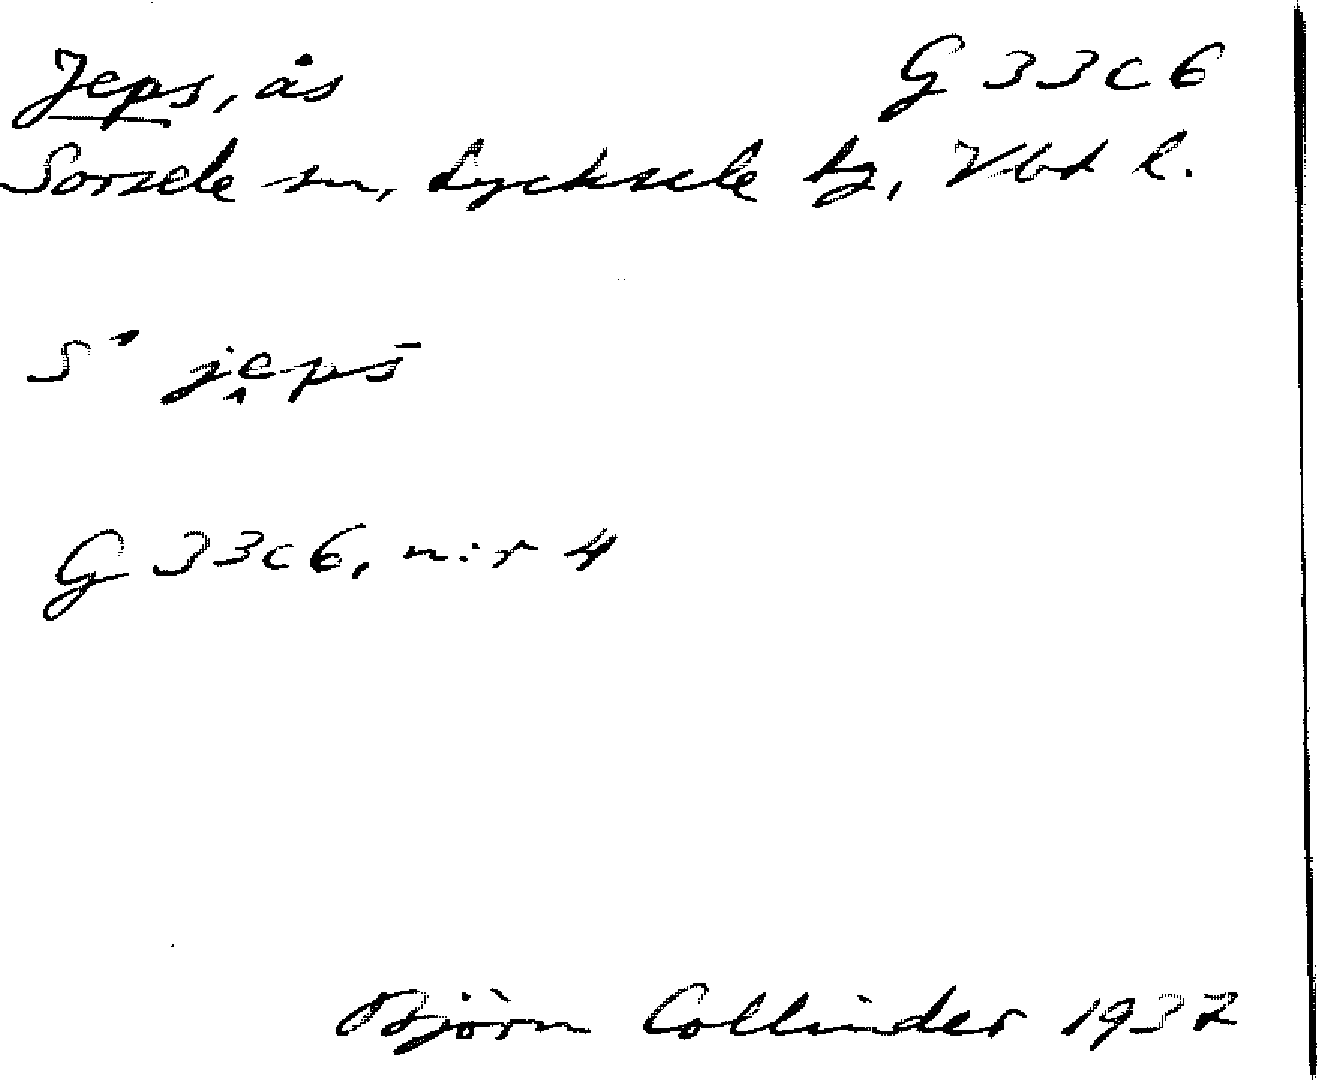 Jeps, ås G 33c6
Sorsele sn, Lycksele tg, Vbd l.
S' jep̨s̄
G 33c6, n:r 4
Björn Collinder 1937